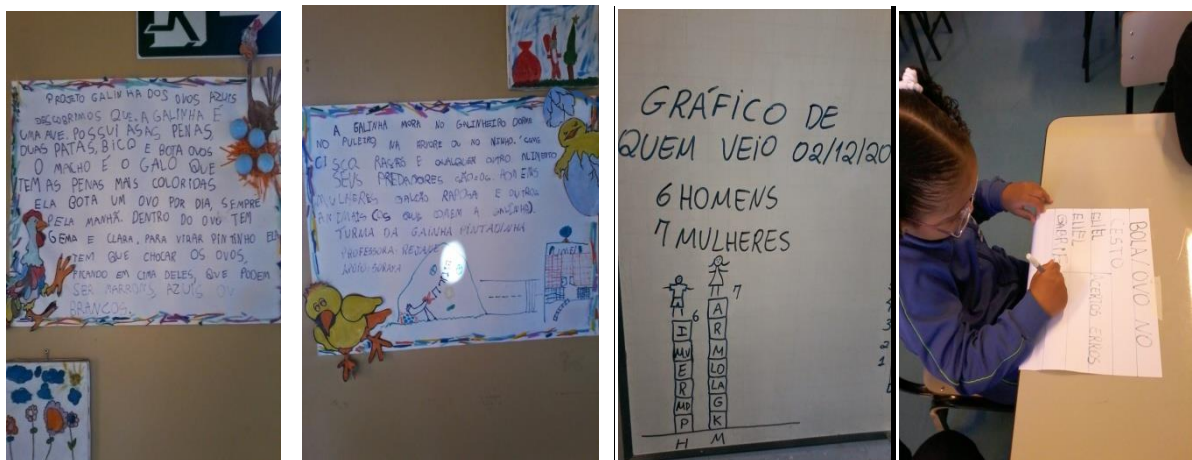 PROJETO GALINHA DOS OVOS AZUIS
DESCOBRIMOS QUE A GALINHA É
UMA AVE, POSSUI ASAS, PENAS,
DUAS PATAS, BICO E BOTA OVOS
O MACHO É O GALO QUE
TEM AS PENAS MAIS COLORIDAS.
ELA BOTA UM OVO POR DIA, SEMPRE
PELA MANHÃ. DENTRO DO OVO TEM
GEMA E CLARA, PARA VIRAR PINTINHO ELA
TEM QUE CHOCAR OS OVOS,
FICANDO EM CIMA DELES, QUE PODEM
SER MARRONS, AZUIS OU
BRANCOS.
A GALINHA MORA NO GALINHEIRO DORME
NO PULEIRO NA ÁRVORE OU NO NINHO.
CISCO, RAÇÃO E QUALQUER OUTRO ALIMENTO
SEUS PREDADORES SÃO: HOMENS
MULHERES GAVIÃO RAPOSA E OUTROS
ANIMAIS (OS QUE COMEM A GALINHA).
TURMA DA GAINHA PINTADINHA
PROFESSORA REJANE
GRÁFICO DE
QUEM VEIO 02/12/20
6 HOMENS
7 MULHERES
7
6
A
I R
MU M
E LO
R LA
MD G
P K
H M
3
2
1
BOLA/OVO NO
CESTO
ELIEL ACERTOS ERROS
ELIEL